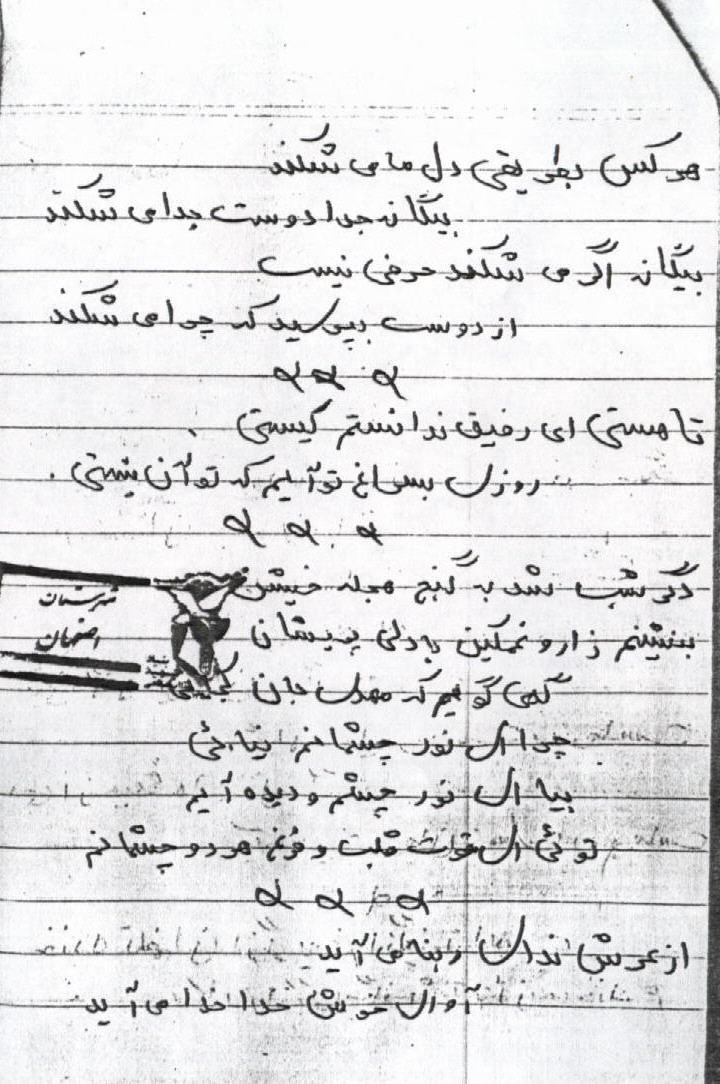 هر کس بطریقی دل ما می شکند
بیگانه جدا دوست جدا می شکند
بیگانه اگر می شکند حرفی نیست
از دوست بپرسید که چرا می شکند
تا هستی ای رفیق ندانستم کیستی
روزی بسراغ تو آیم که تو آن نیستی .
دگر شب شد به گنج هجله خیش
بنشینم زار و غمگین با دلی پریشان
گهی گویم که مهدی جان کجایی
چرا ای نور چشمانم نیائی
بیا ای نور چشم و دیده آیم
توئی ای قوات قلب و فرغ هر دو چشمانم
از عرش ندای ربنا می آید
آوای خوش خدا خدا می آید
شهرستان
اصفهان